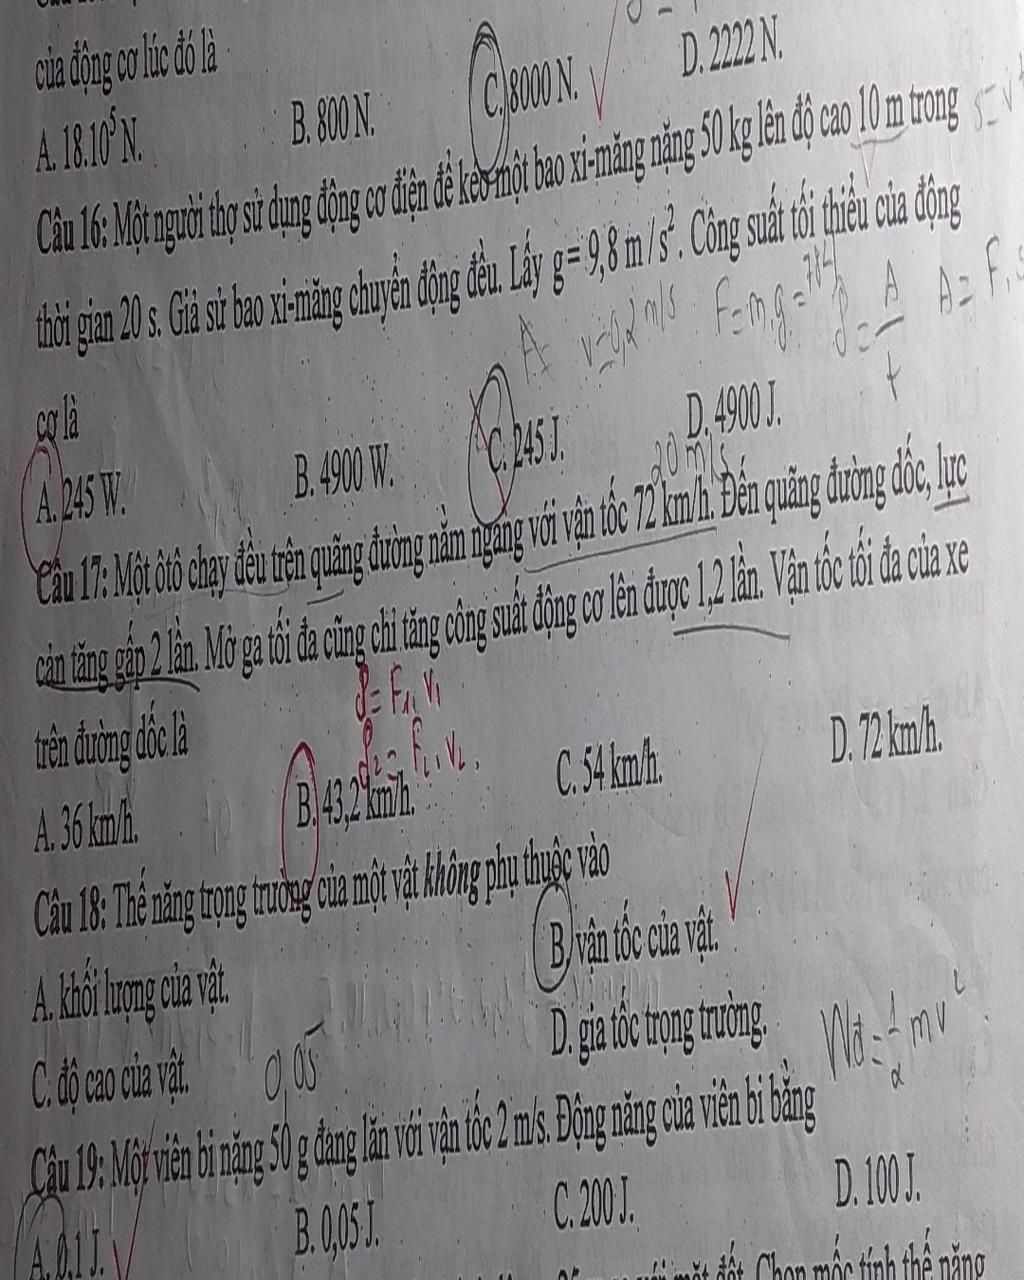 của động cơ lúc đó là
A. 18.10⁵ N. B. 800 N. C. 8000 N. D. 2222 N.
Câu 16: Một người thợ sử dụng động cơ điện để kéo một bao xi-măng nặng 50 kg lên độ cao 10 m trong
thời gian 20 s. Giả sử bao xi-măng chuyển động đều. Lấy g = 9,8 m/s². Công suất tối thiểu của động
v=0,2 m/s F=m.g.=784 P=A/t A=F.s
cơ là
A. 245 W. B. 4900 W. C. 245 J. D. 4900 J.
20 m/s
Câu 17: Một ôtô chạy đều trên quãng đường nằm ngang với vận tốc 72 km/h. Đến quãng đường dốc, lực
cản tăng gấp 2 lần. Mở ga tối đa cũng chỉ tăng công suất động cơ lên được 1,2 lần. Vận tốc tối đa của xe
P=F₁.v₁
trên đường dốc là
P₂=F₂.v₂.
A. 36 km/h. B. 43,2 km/h. C. 54 km/h. D. 72 km/h.
Câu 18: Thế năng trọng trường của một vật không phụ thuộc vào
A. khối lượng của vật. B. vận tốc của vật.
C. độ cao của vật. D. gia tốc trọng trường.
0,05 Wđ=1/2 mv²
Câu 19: Một viên bi nặng 50 g đang lăn với vận tốc 2 m/s. Động năng của viên bi bằng
A. 0,1 J. B. 0,05 J. C. 200 J. D. 100 J.
mặt đất. Chọn mốc tính thế năng